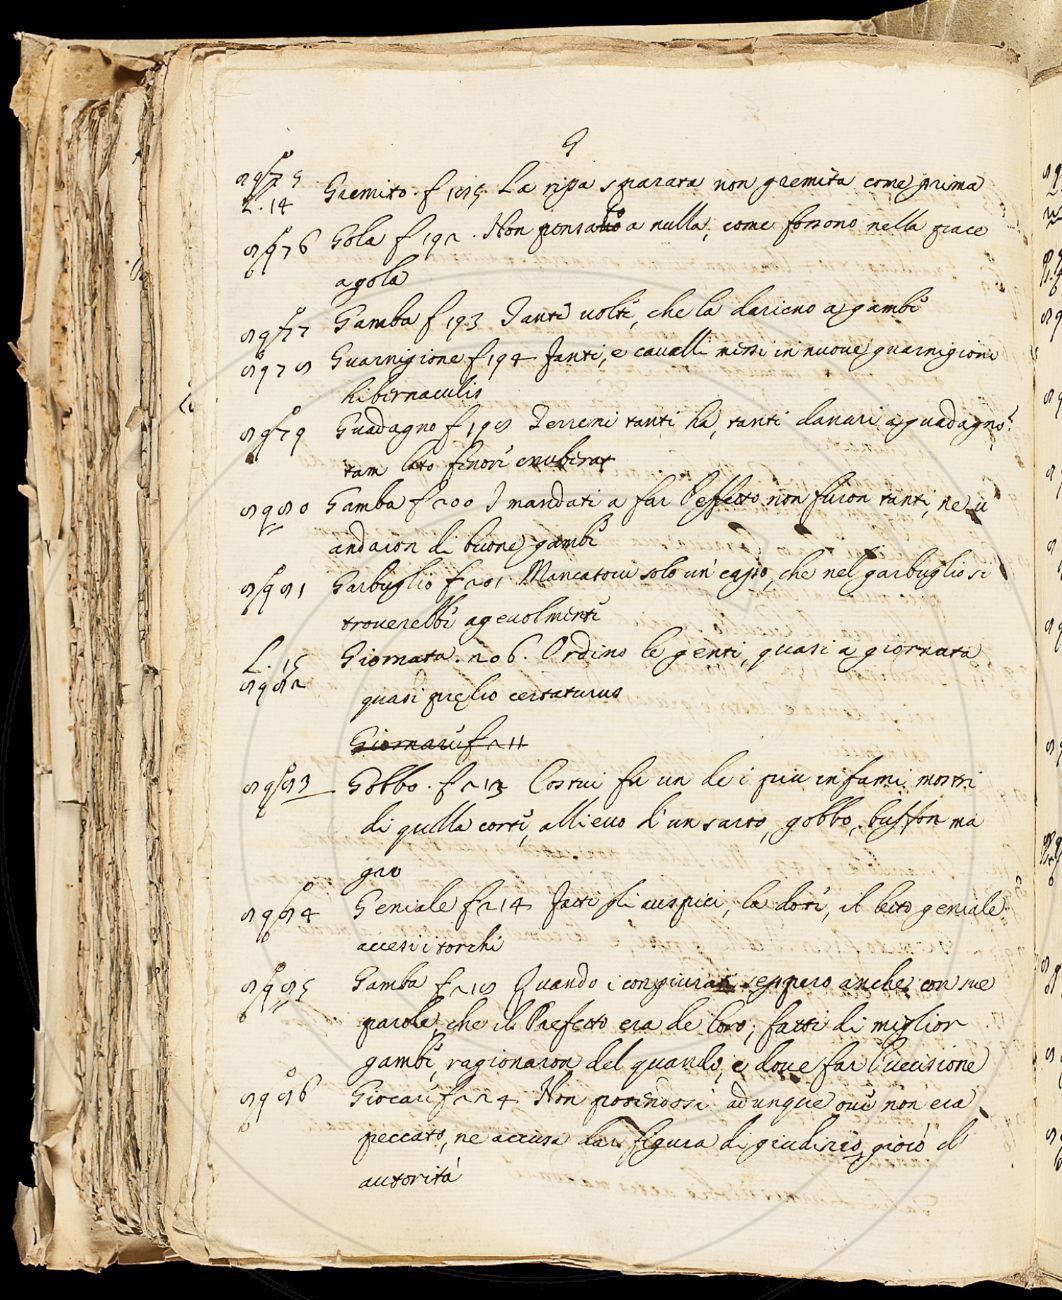 G
Gremito. f 185. La ripa sparata non gremita come prima
L. 14
Gola f 192. Non pensando a nulla, come fossono nella pace
a gola
Gamba f 193 Tante volte, che la darieno a gambe
Guarnigione f 194 Fanti, e cavalli messi in nuove guarnigioni
hibernaculis
Guadagno f 198 Terreni tanti ha, tanti danari a guadagno
tam lato
Gamba f 200 I mandati a far l'effetto non furon tanti, ne vi
andaron di buone gambe
Garbuglio f 201 Mancatovi solo un capo, che nel garbuglio si
troverebbe agevolmente
L. 15
Giornata. 206. Ordino le genti, quasi a giornata
quasi pręlio certaturus
Giornate f 211
Gobbo. f 213 Costui fu un de i piu infami mostri
di quella corte, allievo d'un sarto, gobbo, buffon ma
gro
Geniale f 214 Fatti gli auspici, la dote, il letto geniale
accesi i torchi
Gamba f 218 Quando i congiurati seppero anche con sue
parole, che il Prefetto era de loro; fatti di miglior
gambe, ragionaron del quando, e dove far l'uccisione
Giocare f 224 Non potendosi adunque ove non era
peccato, ne accusa dar figura di giudizio, giocò d'
autorità